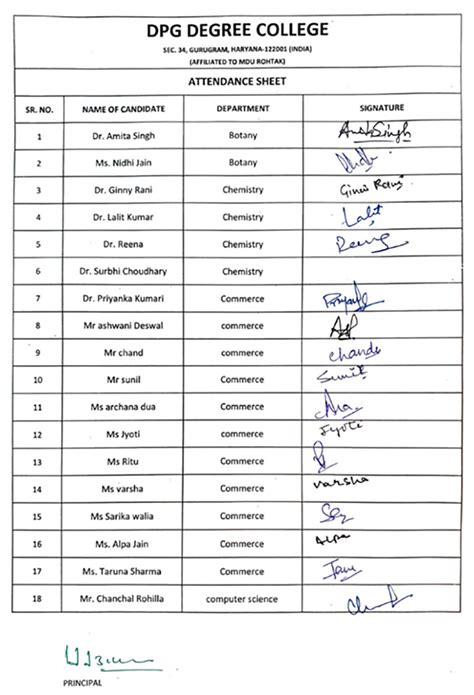 DPG DEGREE COLLEGE
SEC. 34, GURUGRAM, HARYANA-122001 (INDIA)
(AFFILIATED TO MDU ROHTAK)
ATTENDANCE SHEET
SR. NO. NAME OF CANDIDATE DEPARTMENT SIGNATURE
1 Dr. Amita Singh Botany
2 Ms. Nidhi Jain Botany
3 Dr. Ginny Rani Chemistry
4 Dr. Lalit Kumar Chemistry Lalit
5 Dr. Reena Chemistry
6 Dr. Surbhi Choudhary Chemistry
7 Dr. Priyanka Kumari Commerce
8 Mr ashwani Deswal Commerce
9 Mr chand Commerce
10 Mr sunil Commerce Sunil
11 Ms archana dua Commerce
12 Ms Jyoti Commerce Jyoti
13 Ms Ritu Commerce
14 Ms varsha Commerce varsha
15 Ms Sarika walia Commerce
16 Ms. Alpa Jain Commerce Alpa
17 Ms. Taruna Sharma Commerce
18 Mr. Chanchal Rohilla computer science
PRINCIPAL